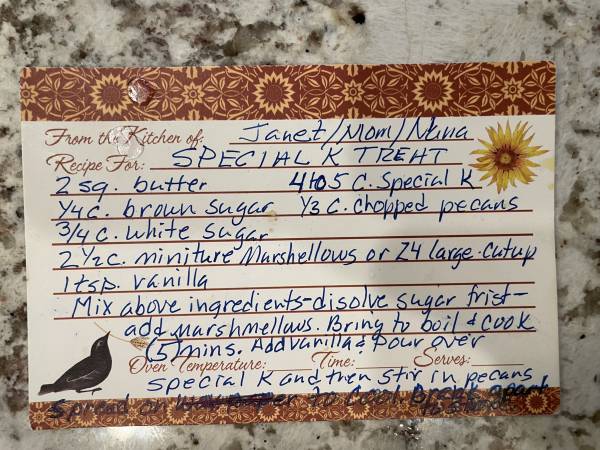 From the Kitchen of: Janet/Mom/Nana
Recipe For: SPECIAL K TREAT
2 sq. butter 4 to 5 C. Special K
1/4 c. brown sugar 1/3 c. chopped pecans
3/4 c. white sugar
2 1/2 c. miniture Marshellows or 24 large-cutup
1 tsp. vanilla
Mix above ingredients-disolve sugar frist-
add marshmellows. Bring to boil & cook
(5) mins. Add vanilla & pour over
Oven Temperature: Time: Serves:
special K and then stir in pecans
Spread on to cool. Break apart
to